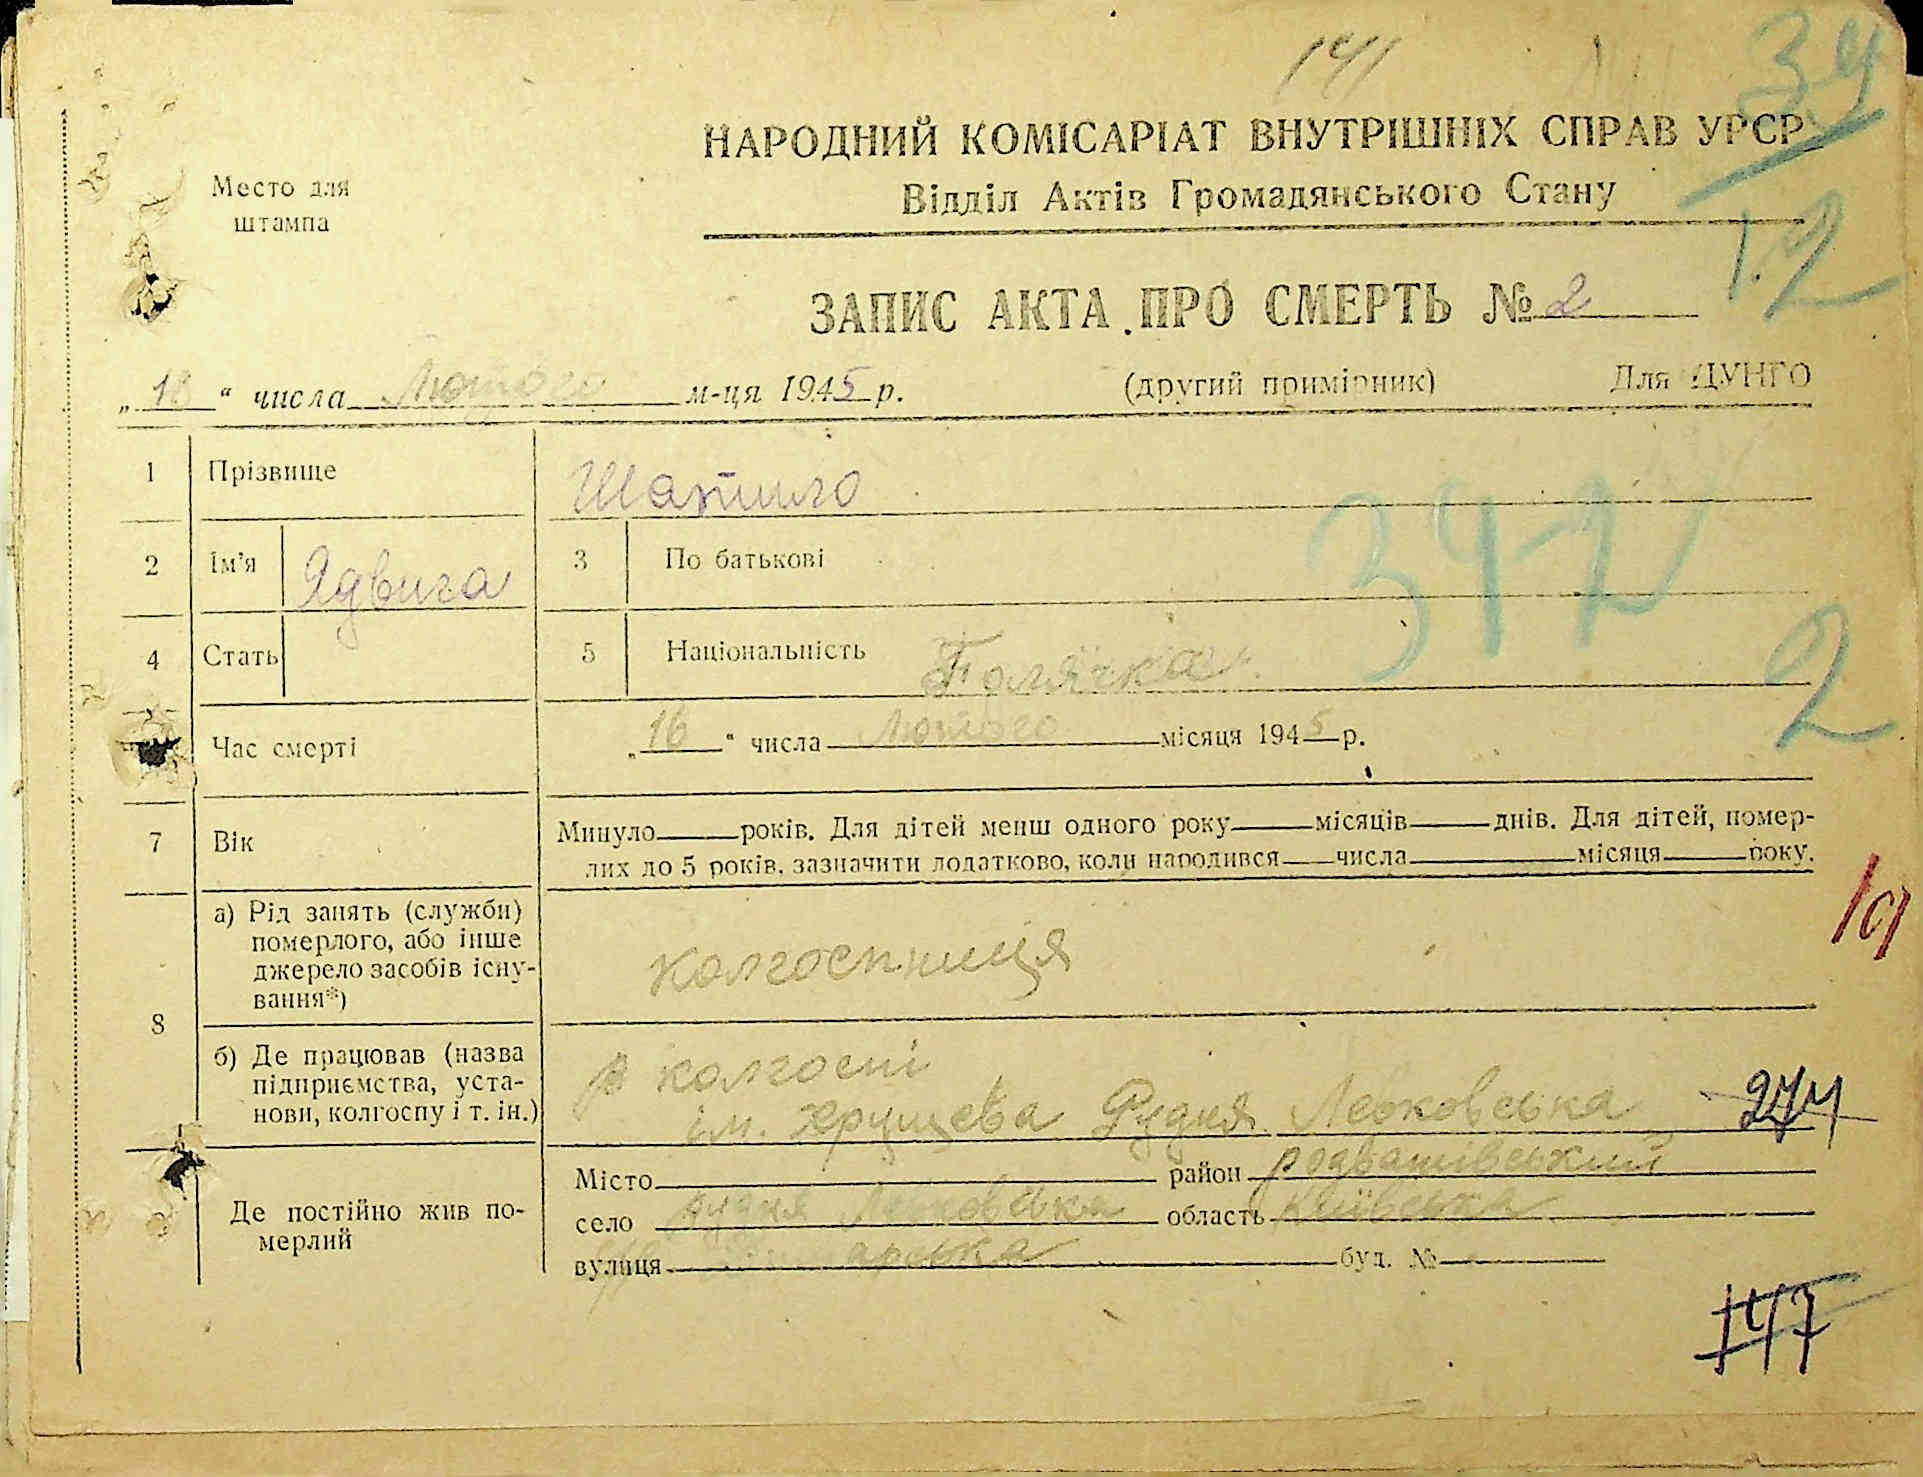 141
34
НАРОДНИЙ КОМІСАРІАТ ВНУТРІШНІХ СПРАВ УРСР
Место для
штампа
Відділ Актів Громадянського Стану
1.2
ЗАПИС АКТА ПРО СМЕРТЬ № 2
„18“ числа Лютого м-ця 1945 р. (другий примірник) Для ЦУНГО
1 Прізвище Шапило
342
2 Ім'я Ядвига 3 По батькові
4 Стать 5 Національність Полячка
2
Час смерті „16“ числа Лютого місяця 1945 р.
7 Вік Минуло років. Для дітей менш одного року місяців днів. Для дітей, помер-
лих до 5 років, зазначити додатково, коли народився числа місяця року.
8 а) Рід занять (служби)
померлого, або інше
джерело засобів існу-
вання*)
колгоспниця
б) Де працював (назва
підприємства, уста-
нови, колгоспу і т. ін.)
В колгоспі
ім. Хрущева Рудня Левковська
274
Де постійно жив по-
мерлий
Місто район розважівський
село Рудня Левковська область Київська
вулиця буд. №
147